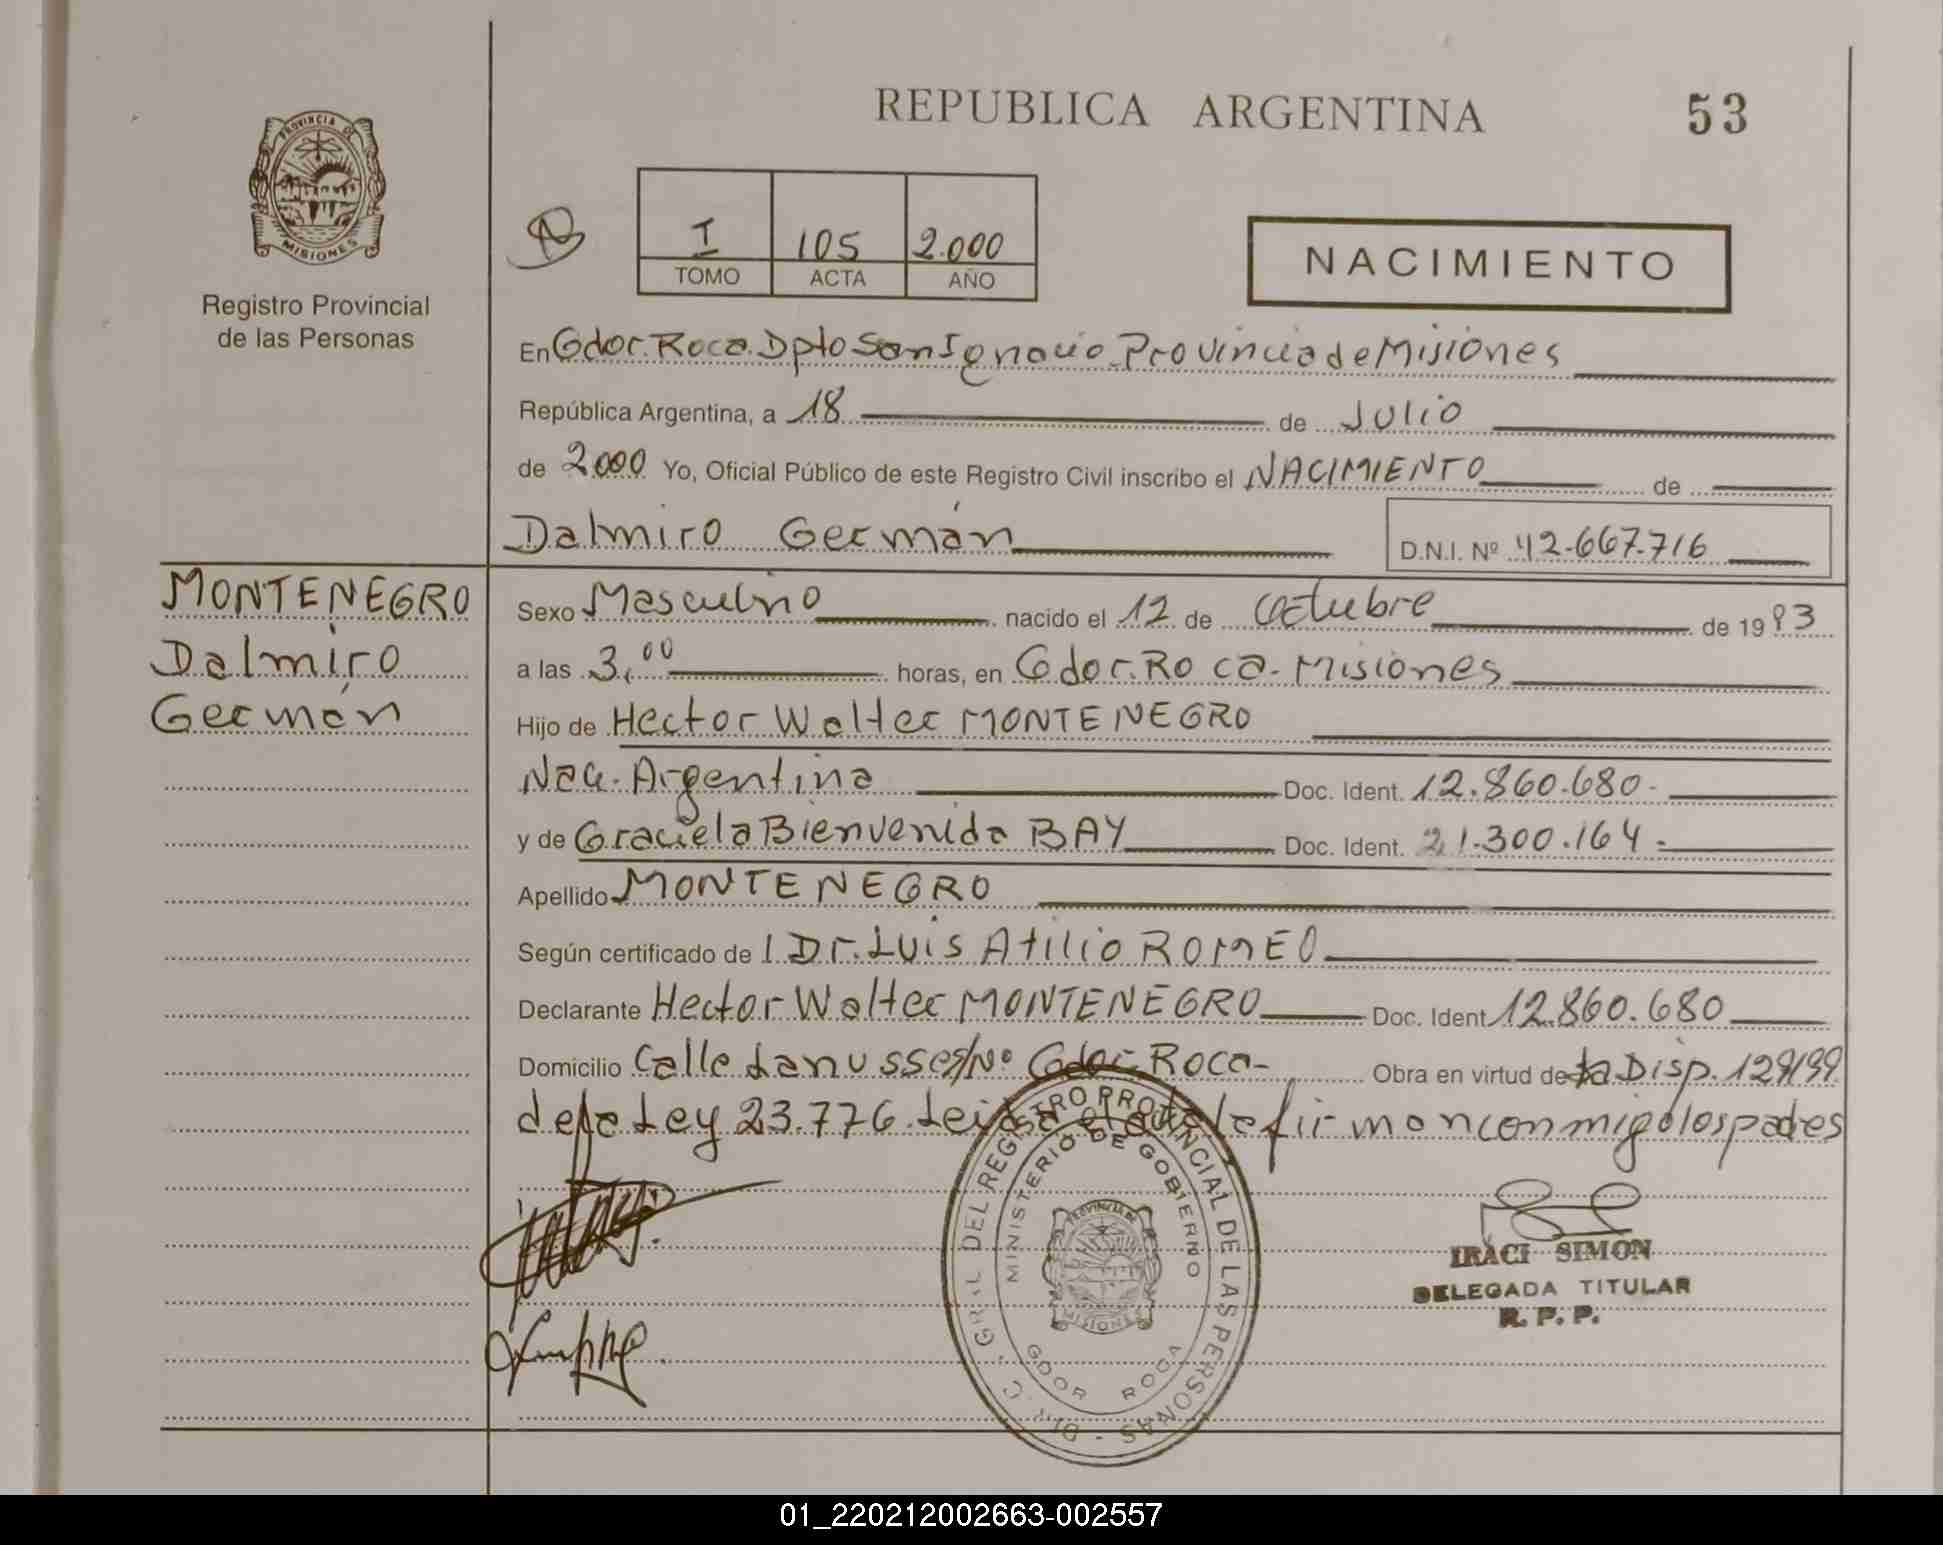 REPUBLICA ARGENTINA
53
PROVINCIA DE
MISIONES
Registro Provincial
de las Personas
I 105 2.000
TOMO ACTA AÑO
NACIMIENTO
En Gdor. Roca. Dpto San Ignacio. Provincia de Misiones
República Argentina, a 18 de Julio
de 2000 Yo, Oficial Público de este Registro Civil inscribo el NACIMIENTO de
Dalmiro Germán
D.N.I. Nº 42.667.716
MONTENEGRO
Dalmiro
Germán
Sexo Masculino nacido el 12 de Octubre de 1993
a las 3,00 horas, en Gdor. Roca. Misiones
Hijo de Hector Walter MONTENEGRO
Nac. Argentina Doc. Ident. 12.860.680.-
y de Graciela Bienvenida BAY Doc. Ident. 21.300.164.-
Apellido MONTENEGRO
Según certificado de l Dr. Luis Atilio ROMEO
Declarante Hector Walter MONTENEGRO Doc. Ident 12.860.680
Domicilio Calle Lanusse s/Nº Gdor. Roca- Obra en virtud de la Disp. 129/99
de la Ley 23.776. Leida el acta la firman conmigo los padres
DIR. C. GRAL DEL REGISTRO PROVINCIAL DE LAS PERSONAS -
MINISTERIO DE GOBIERNO
PROVINCIA DE
MISIONES
GDOR ROCA
IRACI SIMON
DELEGADA TITULAR
R. P. P.
01_220212002663-002557